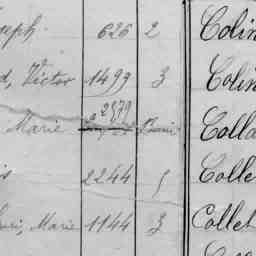 seph. 626 2 Colin
d, Victor 1493 3 Colin
Marie 2879 Colla
is 2244 Colle
Marie 1144 3 Collet